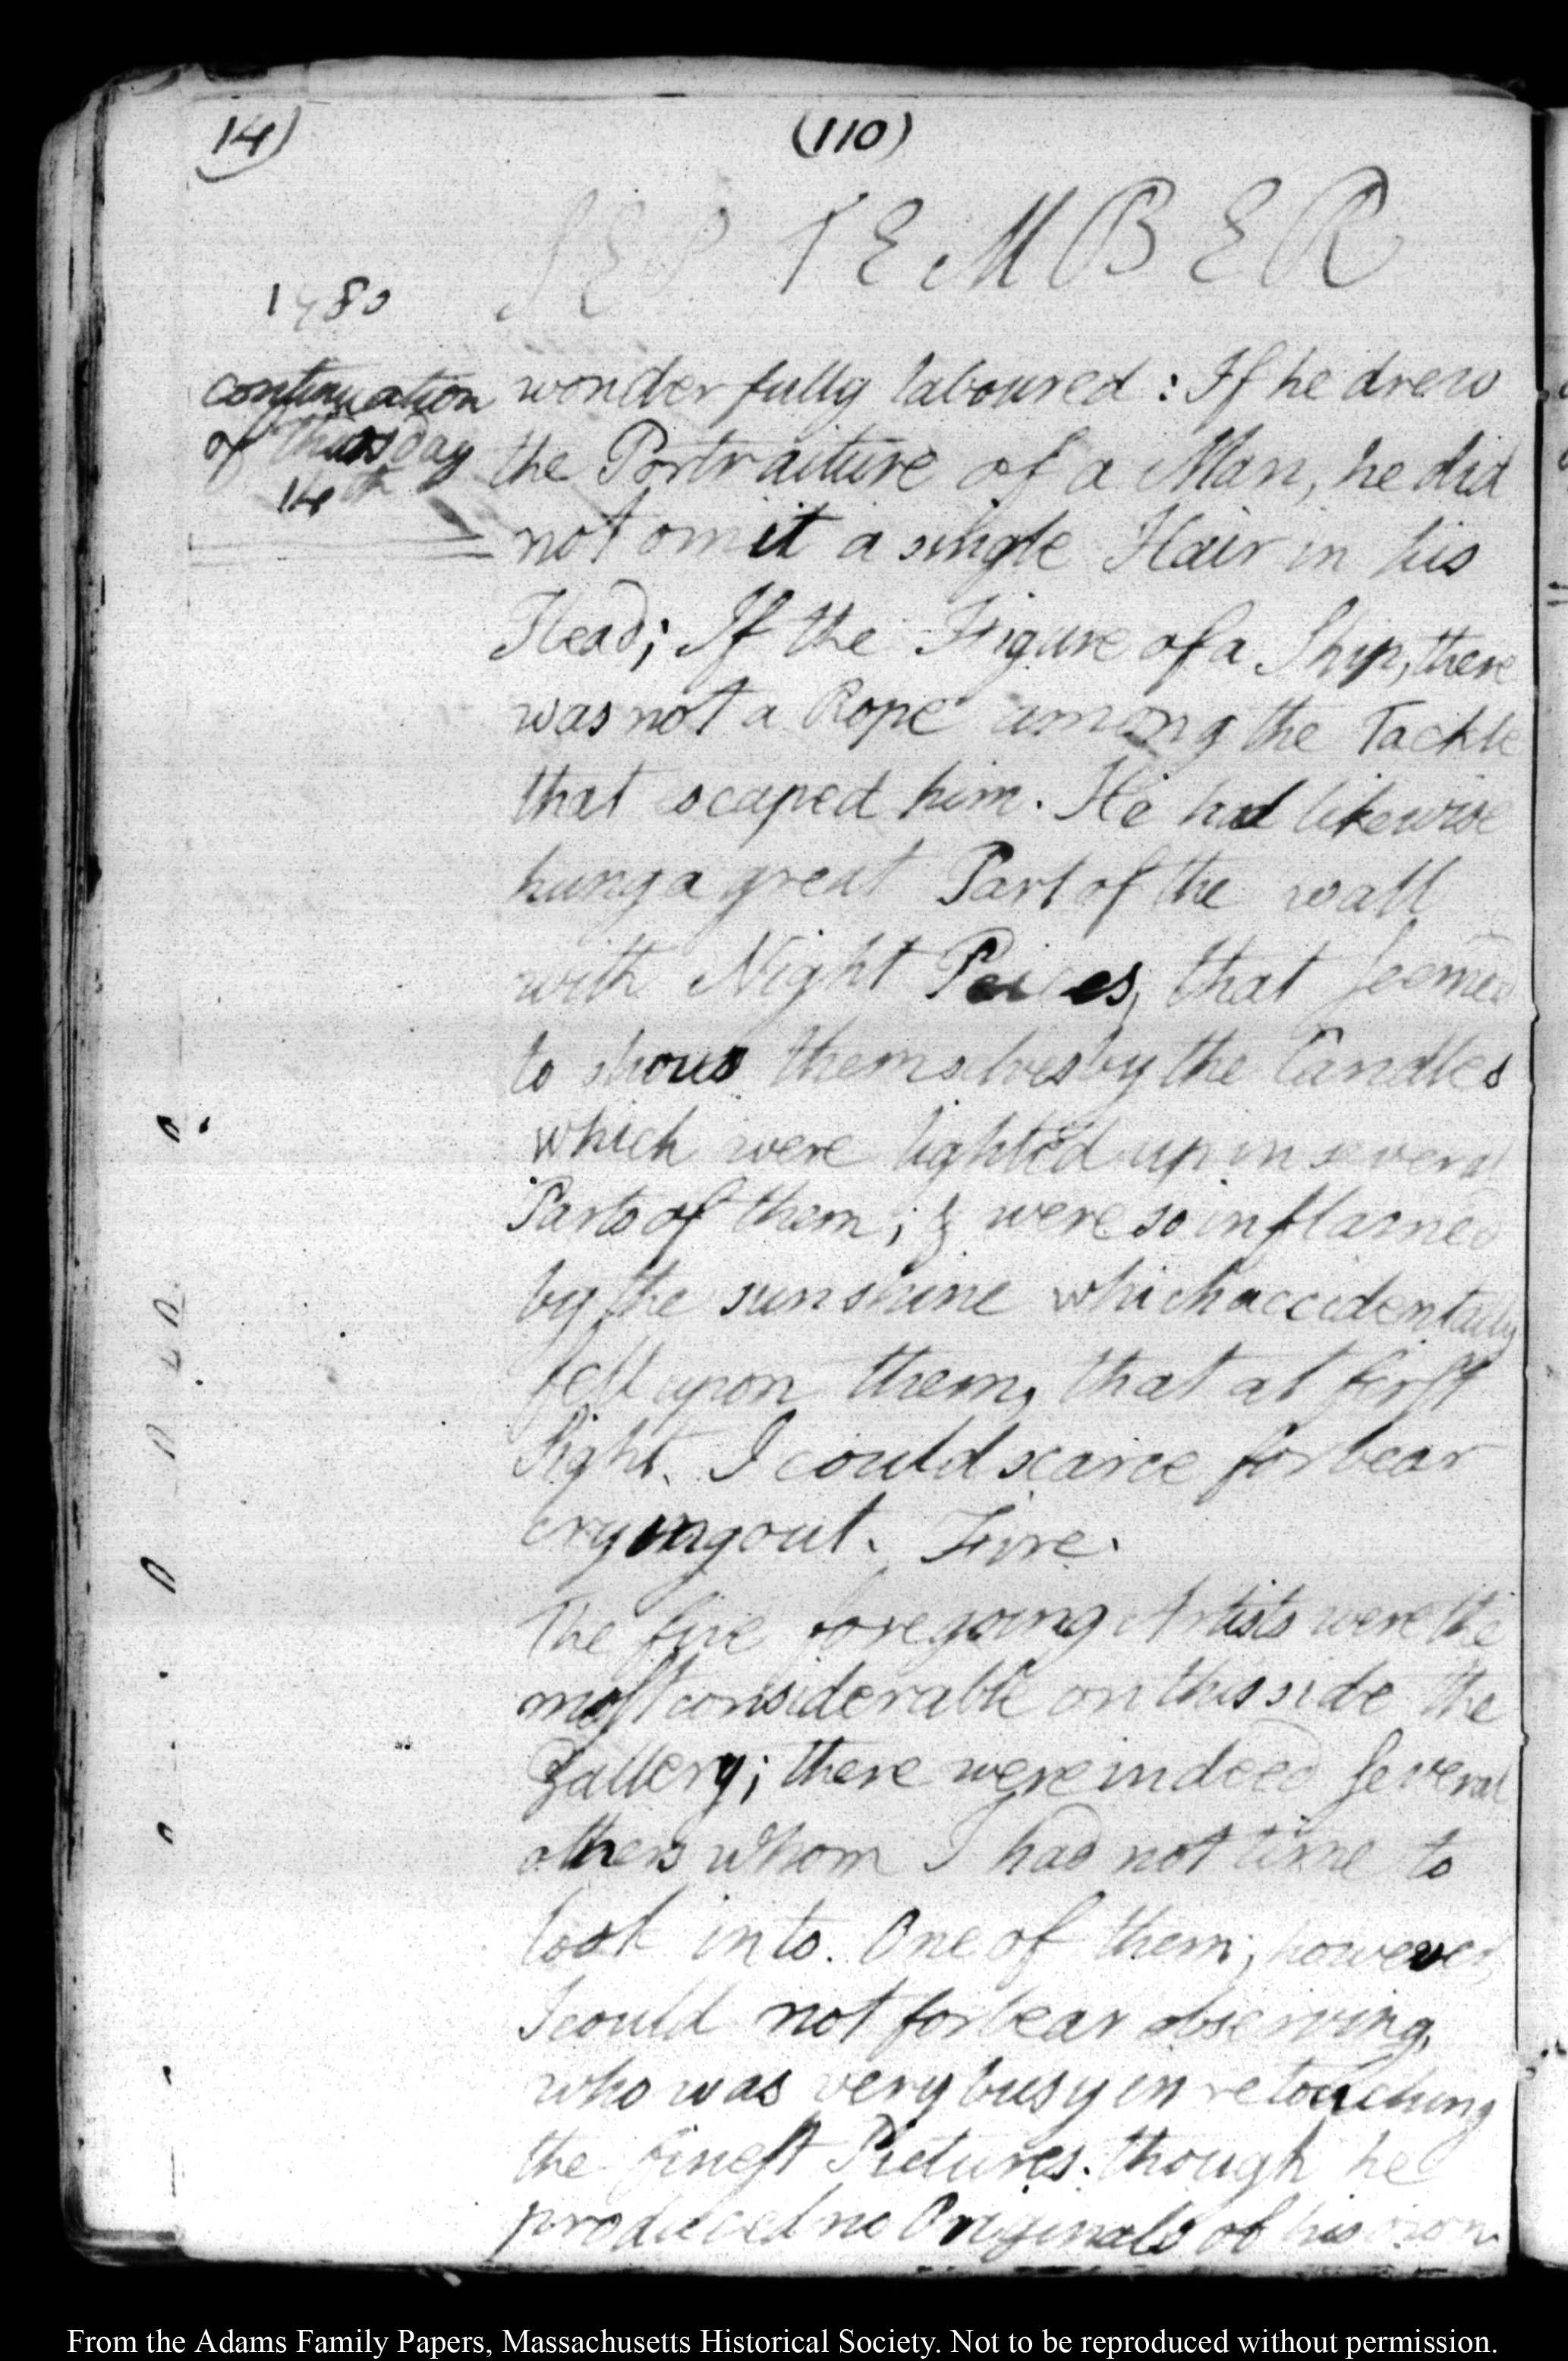 14)
(110)
SEPTEMBER
1780
continuation
of thursday
14th
wonderfully laboured: If he drew
the Portraiture of a Man, he did
not omit a single Hair in his
Head; If the Figure of a Ship, there
was not a Rope among the Tackle
that scaped him. He had likewise
hung a great Part of the wall
with Night Peices, that seemed
to show themselves by the Candles
which were lighted up in several
Parts of them; & were so inflamed
by the sunshine which accidentally
fell upon them, that at first
Sight. I could scarce forbear
crying out. Fire.
The five foregoing Artists were the
most considerable on this side the
Gallery; there were indeed several
others whom I had not time to
look into. One of them, however,
I could not forbear observing,
who was very busy in retouching
the finest Pictures. though he
produced no Originals of his own
From the Adams Family Papers, Massachusetts Historical Society. Not to be reproduced without permission.